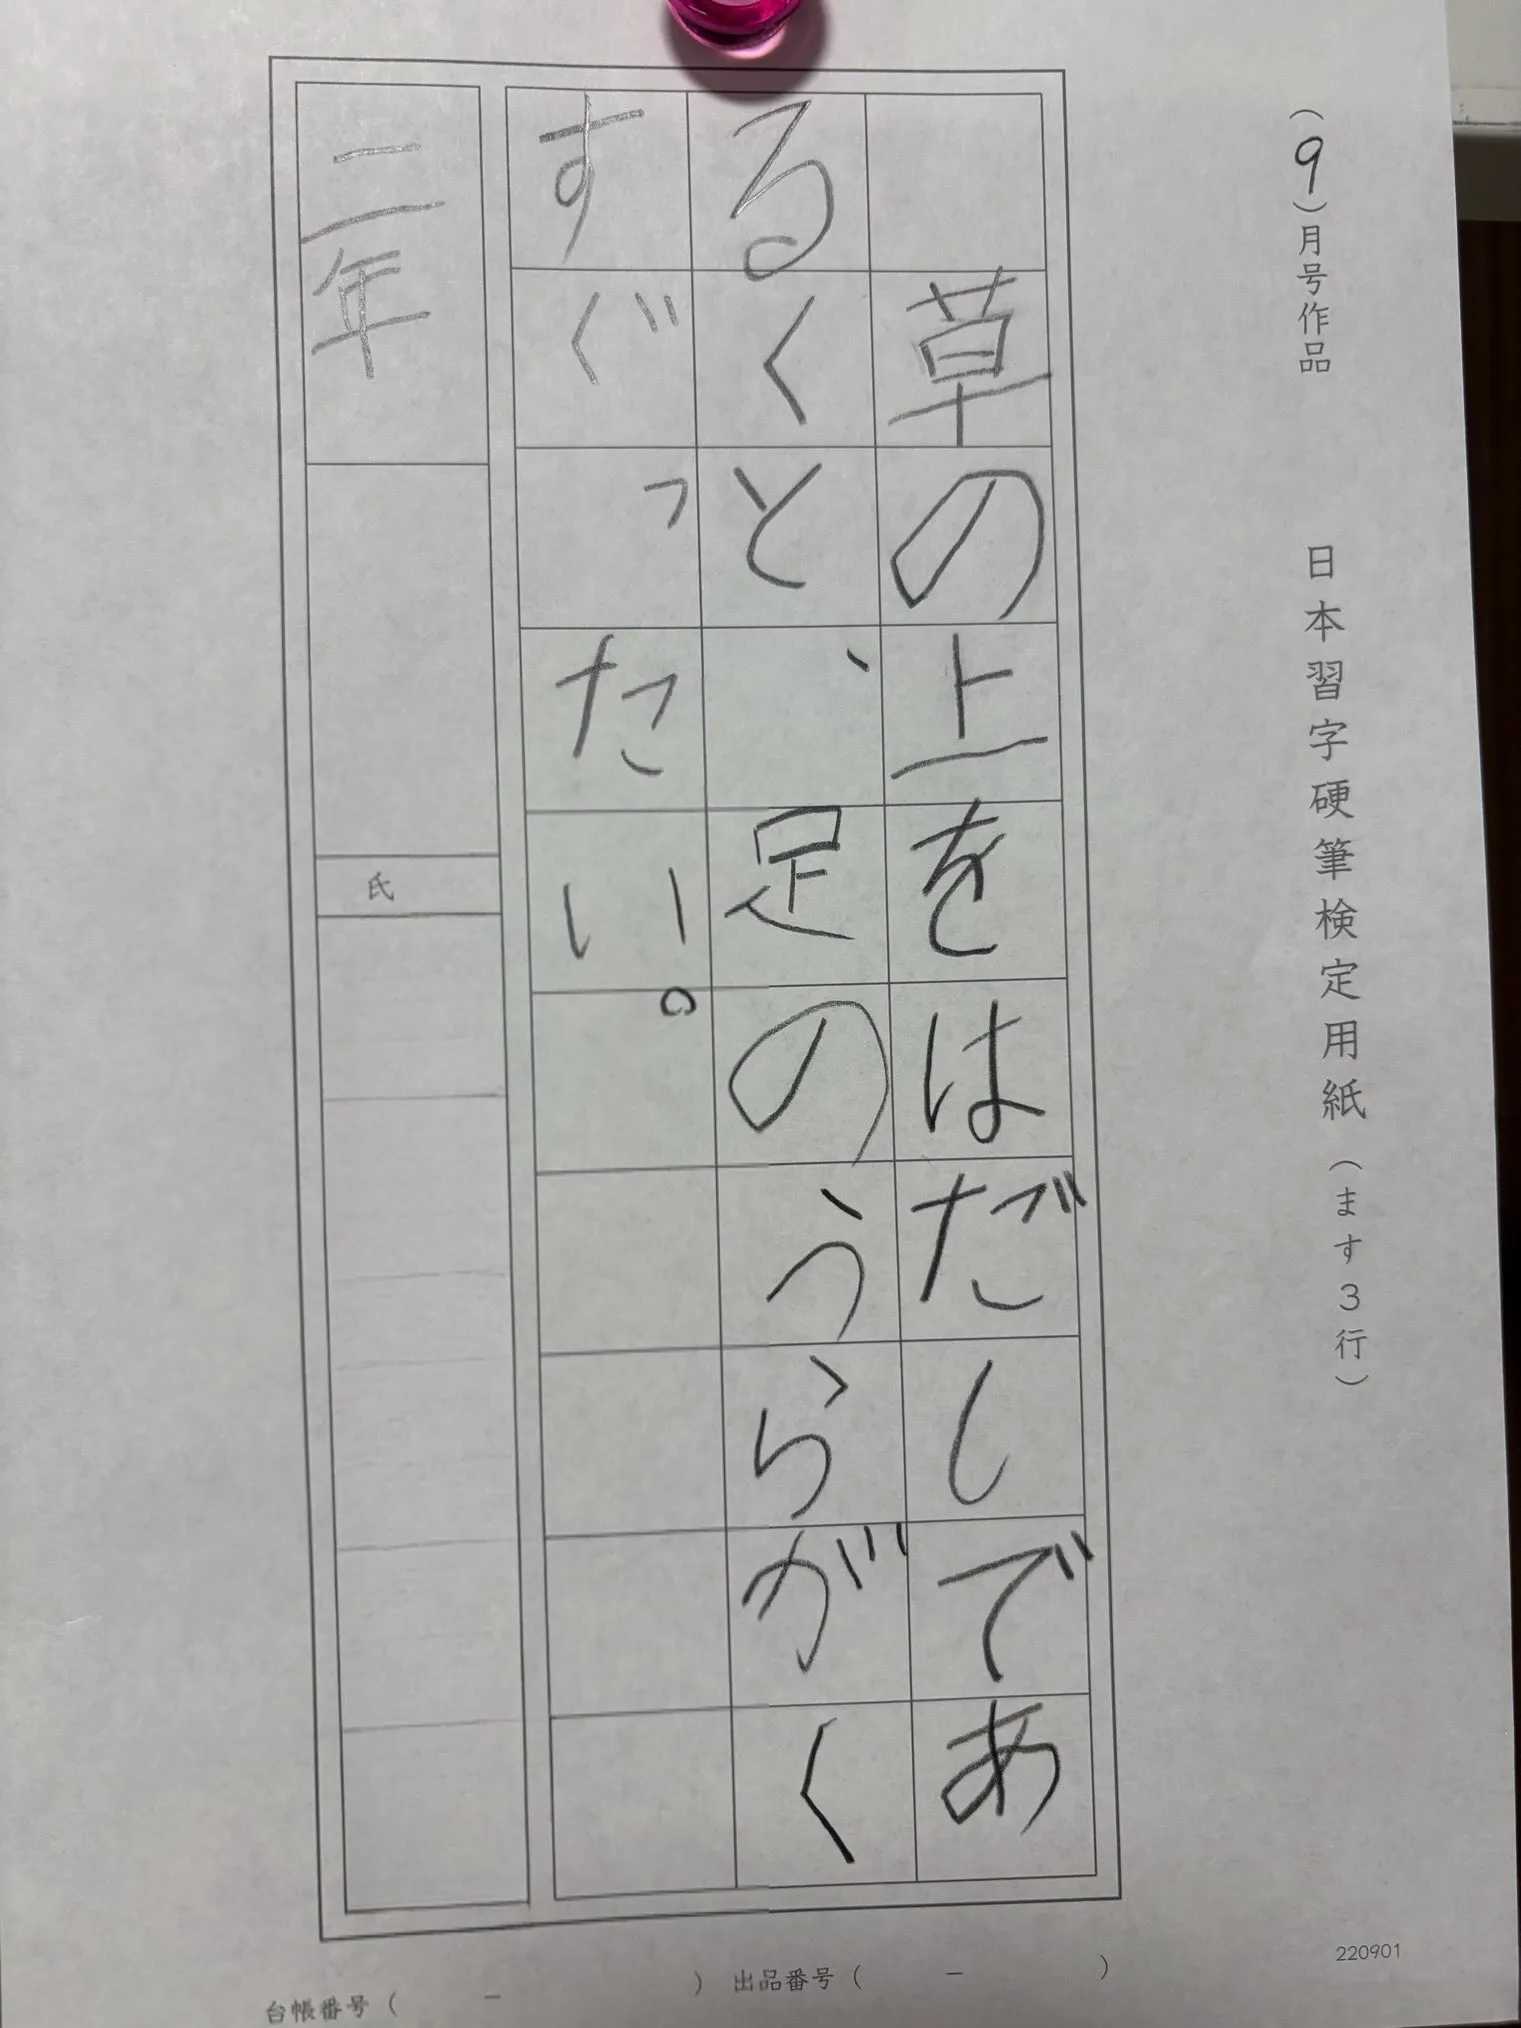 (9)月号作品
日本習字硬筆検定用紙(ます3行)
草の上をはだしであ
るくと、足のうらがく
すぐったい。
二年
氏
台帳番号( - )
出品番号( - )
220901